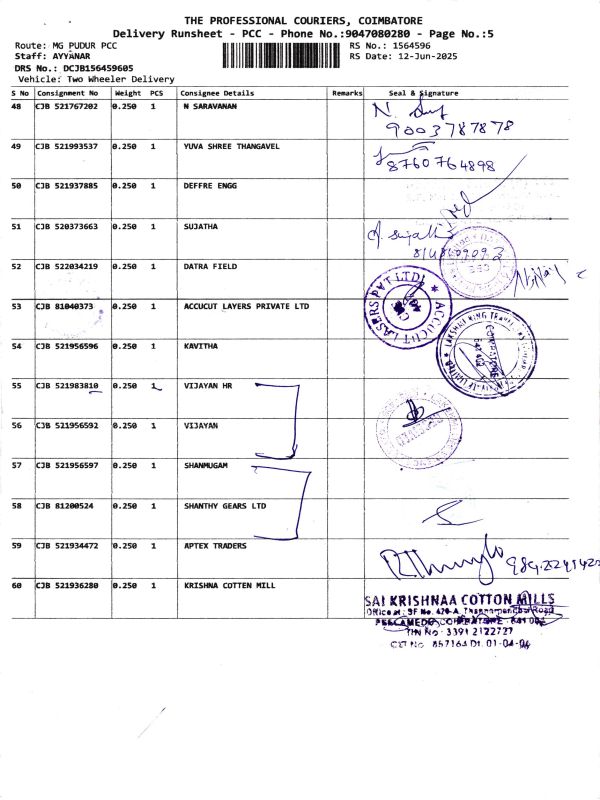 THE PROFESSIONAL COURIERS, COIMBATORE
Delivery Runsheet - PCC - Phone No.:9047080280 - Page No.:5
Route: MG PUDUR PCC RS No.: 1564596
Staff: AYYANAR RS Date: 12-Jun-2025
DRS No.: DCJB156459605
Vehicle: Two Wheeler Delivery
S No Consignment No Weight PCS Consignee Details Remarks Seal & Signature
48 CJB 521767202 0.250 1 N SARAVANAN N.
9003787878
49 CJB 521993537 0.250 1 YUVA SHREE THANGAVEL
8760764898
50 CJB 521937885 0.250 1 DEFFRE ENGG
51 CJB 520373663 0.250 1 SUJATHA
52 CJB 522034219 0.250 1 DATRA FIELD
53 CJB 81040373 0.250 1 ACCUCUT LAYERS PRIVATE LTD
ACCUCUT LASERS PVT LTD
54 CJB 521956596 0.250 1 KAVITHA
55 CJB 521983810 0.250 1 VIJAYAN HR
56 CJB 521956592 0.250 1 VIJAYAN
57 CJB 521956597 0.250 1 SHANMUGAM
58 CJB 81200524 0.250 1 SHANTHY GEARS LTD
59 CJB 521934472 0.250 1 APTEX TRADERS
60 CJB 521936280 0.250 1 KRISHNA COTTEN MILL
SAI KRISHNAA COTTON MILLS
TIN No : 33912122727